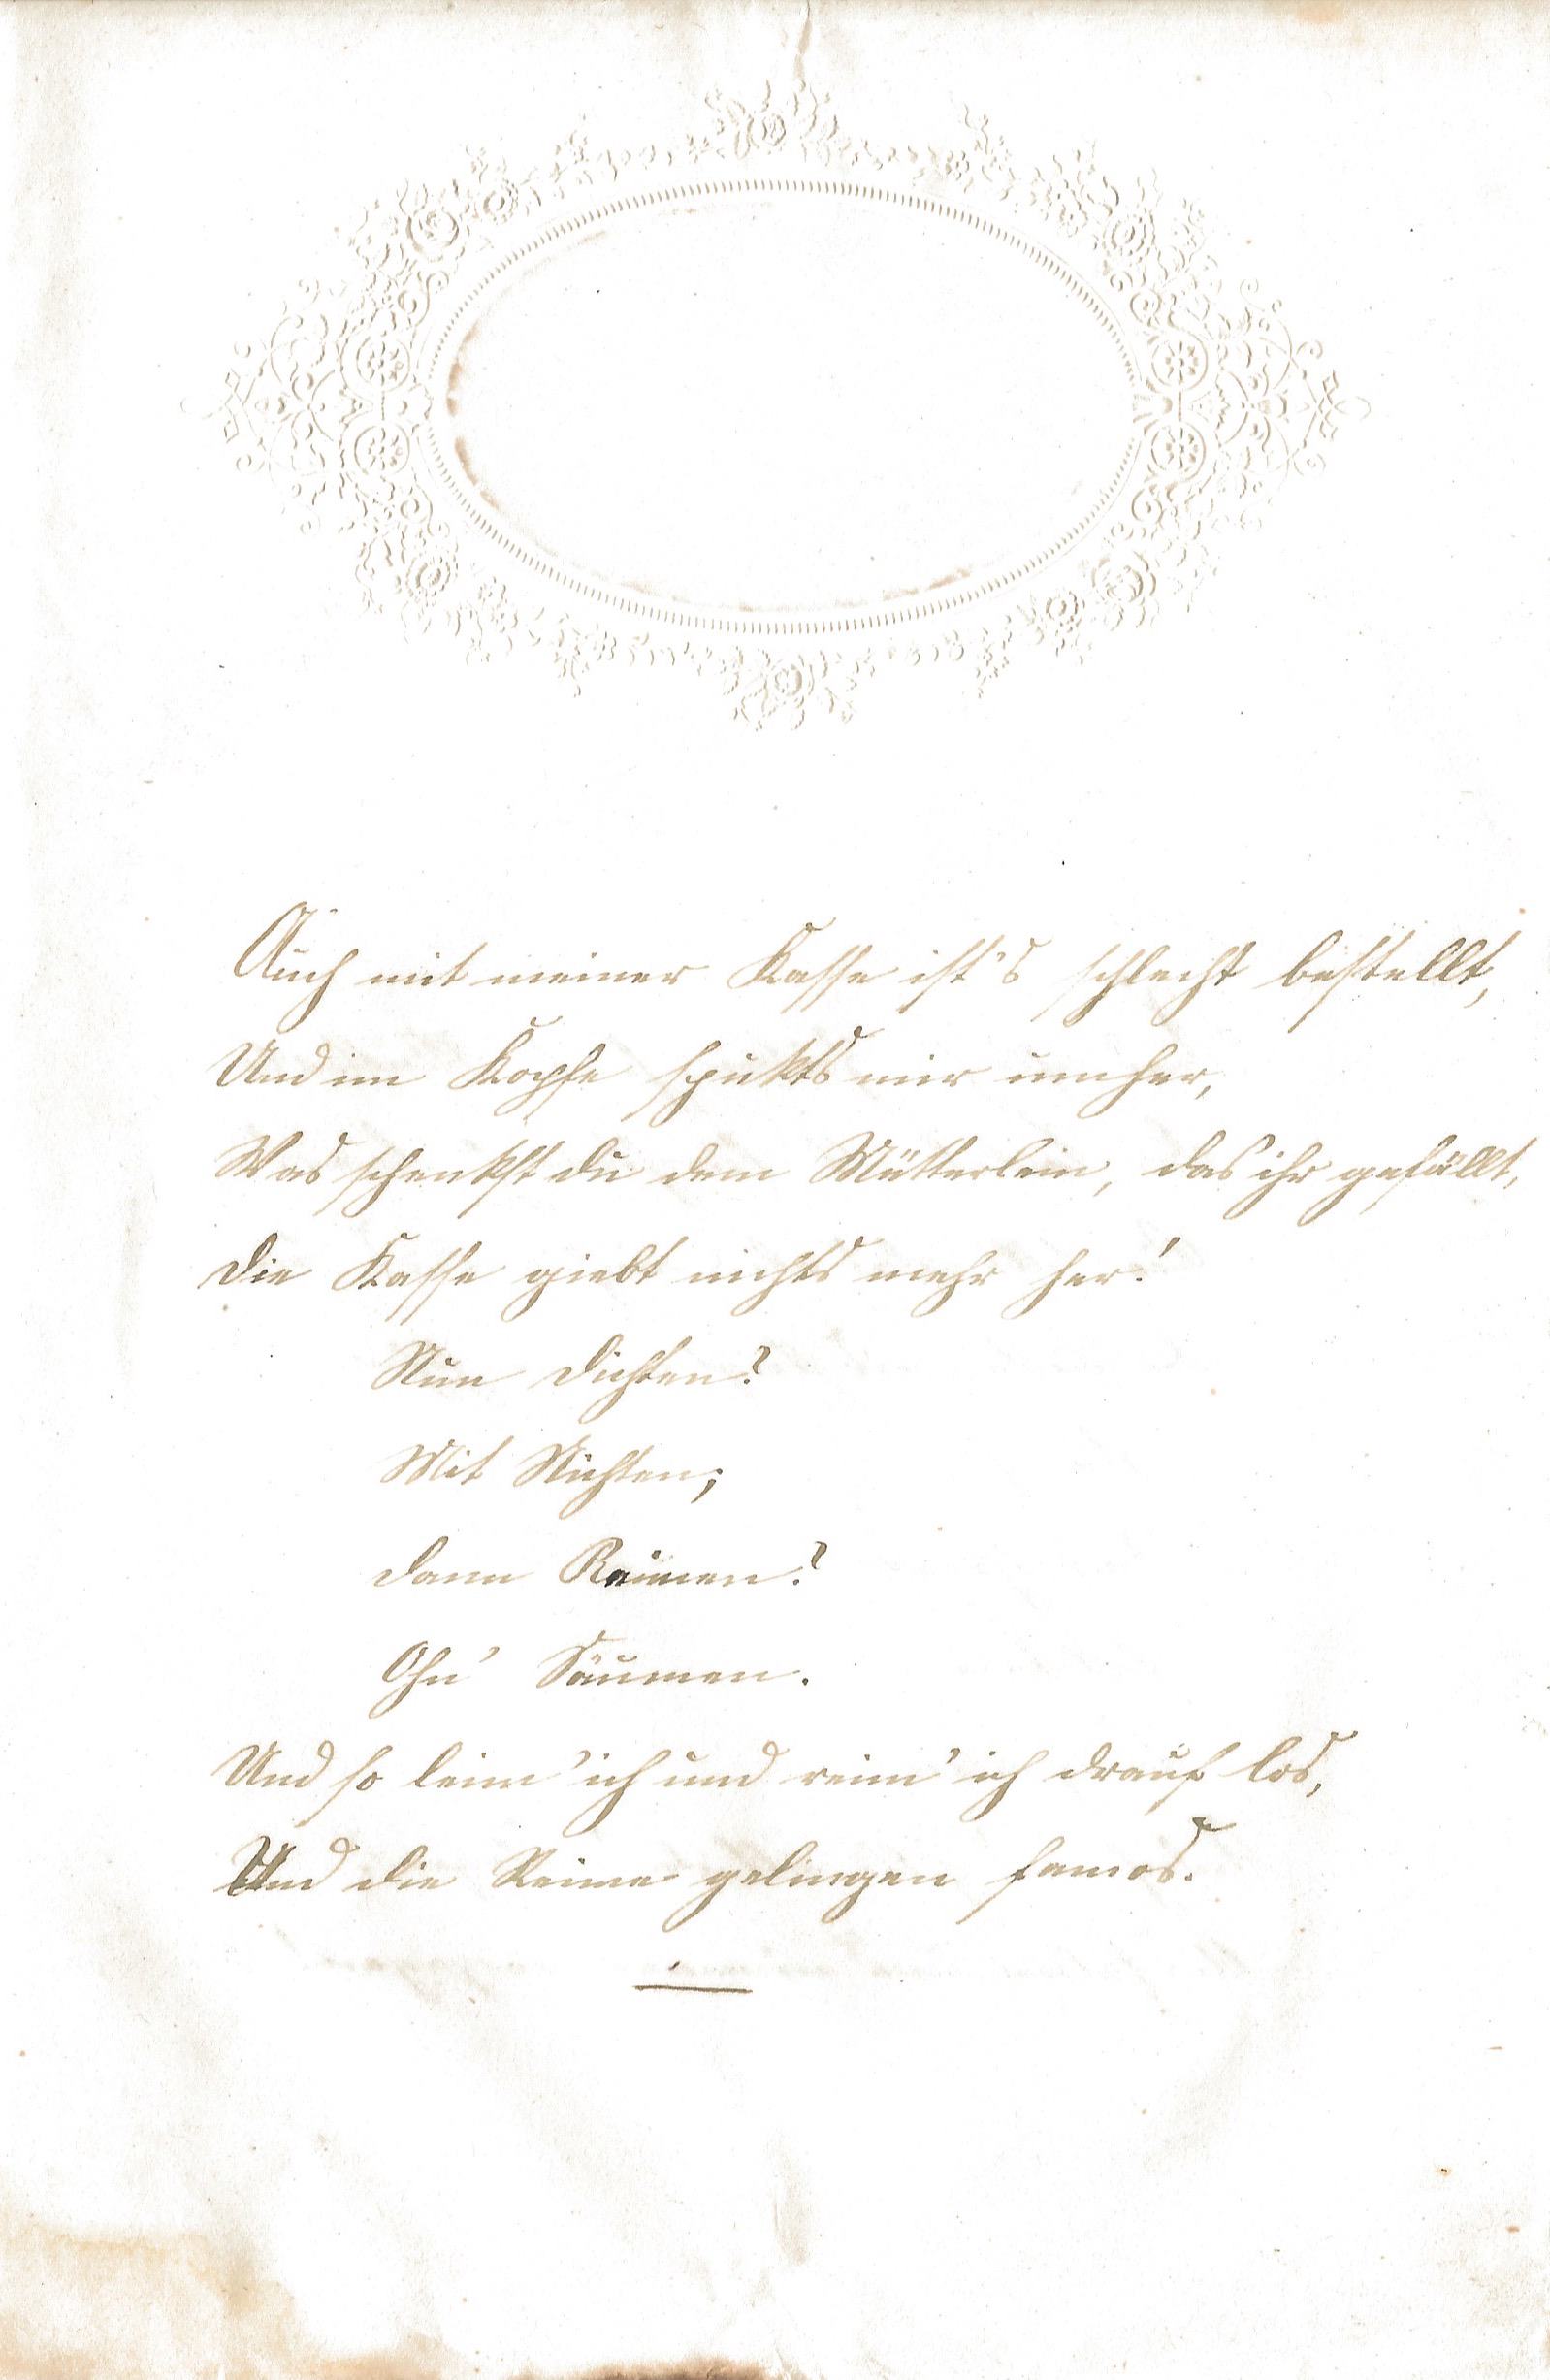 Auch mit meiner Kasse ist's schlecht bestellt,
Und im Kopfe spukts mir umher,
Was schenkst du dem Mütterlein, das ihr gefällt,
Die Kasse giebt nichts mehr her!
Nun Dichten?
Mit Nichten;
Dann Reimen?
Ohn' Säumen.
Und so leim' ich und reim' ich drauf los,
Und die Reime gelingen famos.